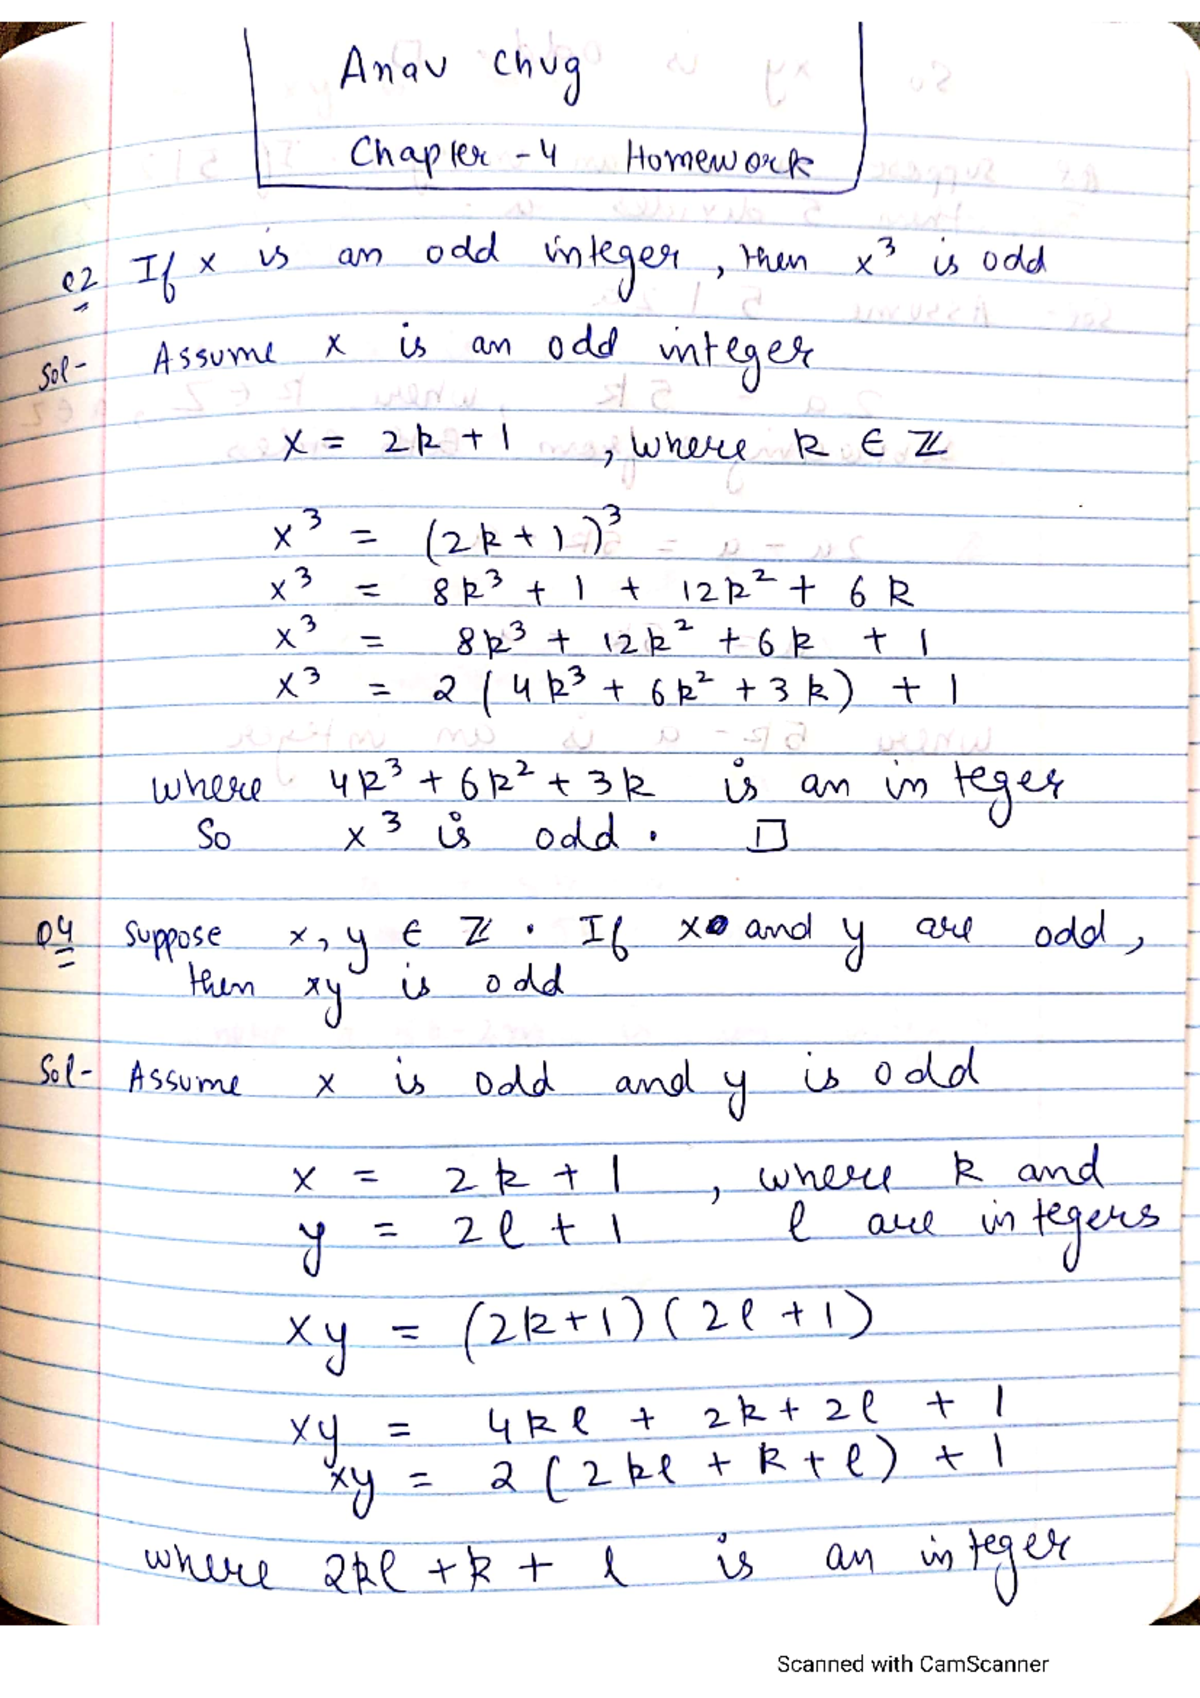 Anav Chug
Chapter - 4 Homework
Q2 If x is an odd integer, then x³ is odd
Sol- Assume x is an odd integer
x = 2k + 1 , where k ∈ ℤ
x³ = (2k + 1)³
x³ = 8k³ + 1 + 12k² + 6k
x³ = 8k³ + 12k² + 6k + 1
x³ = 2 (4k³ + 6k² + 3k) + 1
where 4k³ + 6k² + 3k is an integer
So x³ is odd. □
Q4 Suppose x, y ∈ ℤ. If x and y are odd,
then xy is odd
Sol- Assume x is odd and y is odd
x = 2k + 1 , where k and
y = 2l + 1 l are integers
xy = (2k+1) (2l +1)
xy = 4kl + 2k + 2l + 1
xy = 2 (2kl + k + l) + 1
where 2kl + k + l is an integer
Scanned with CamScanner